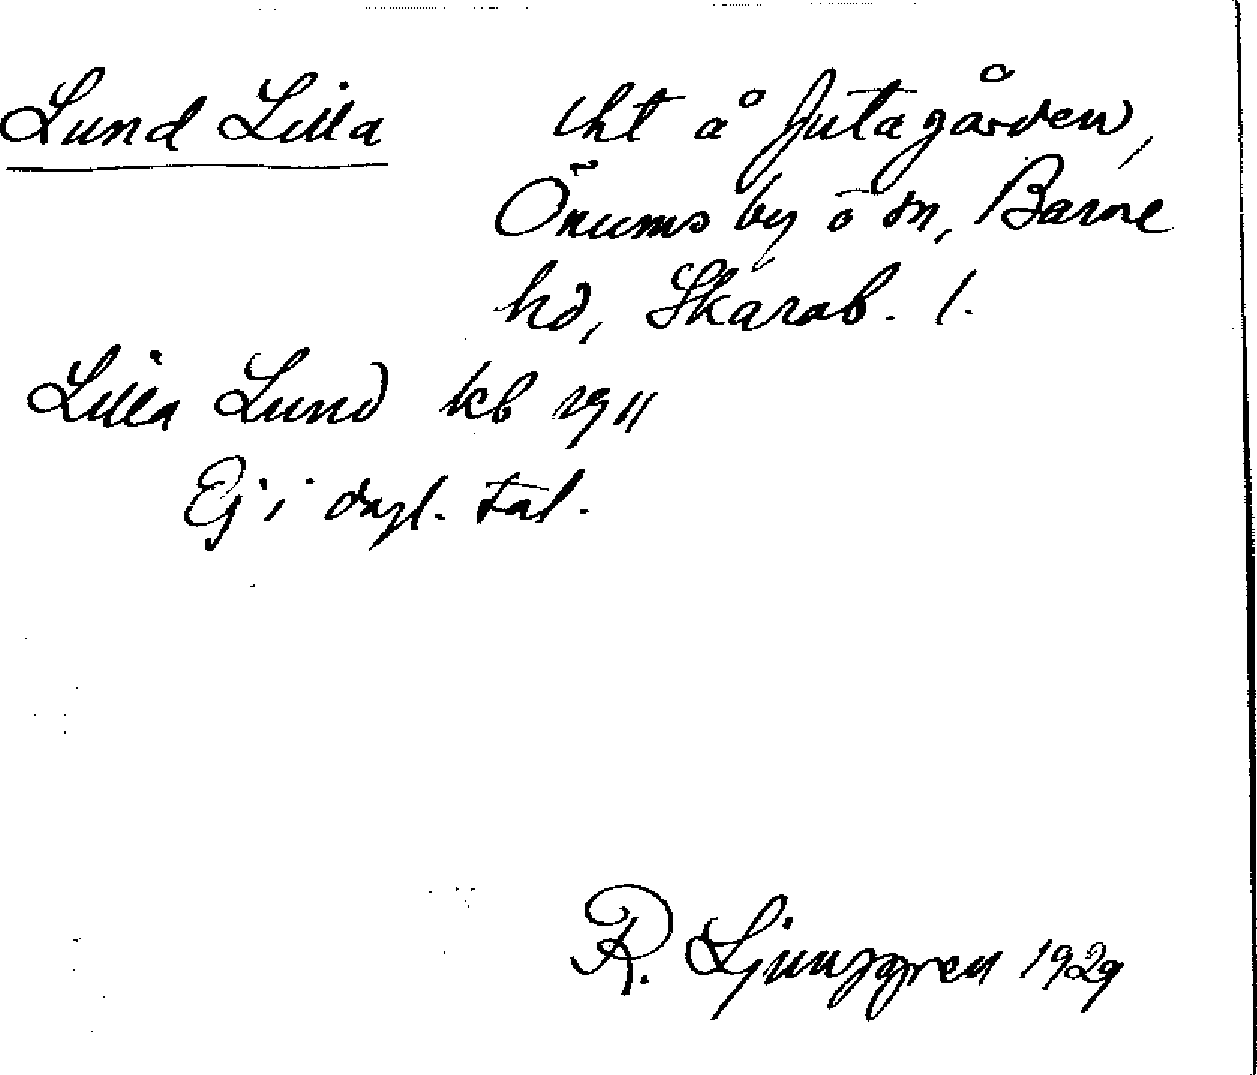 Lund Lilla lht å Jutagården,
Önums by o sn, Barne
hd, Skarab. l.
Lilla Lund kb 1911
Ej i dagl. tal.
R. Ljunggren 1929